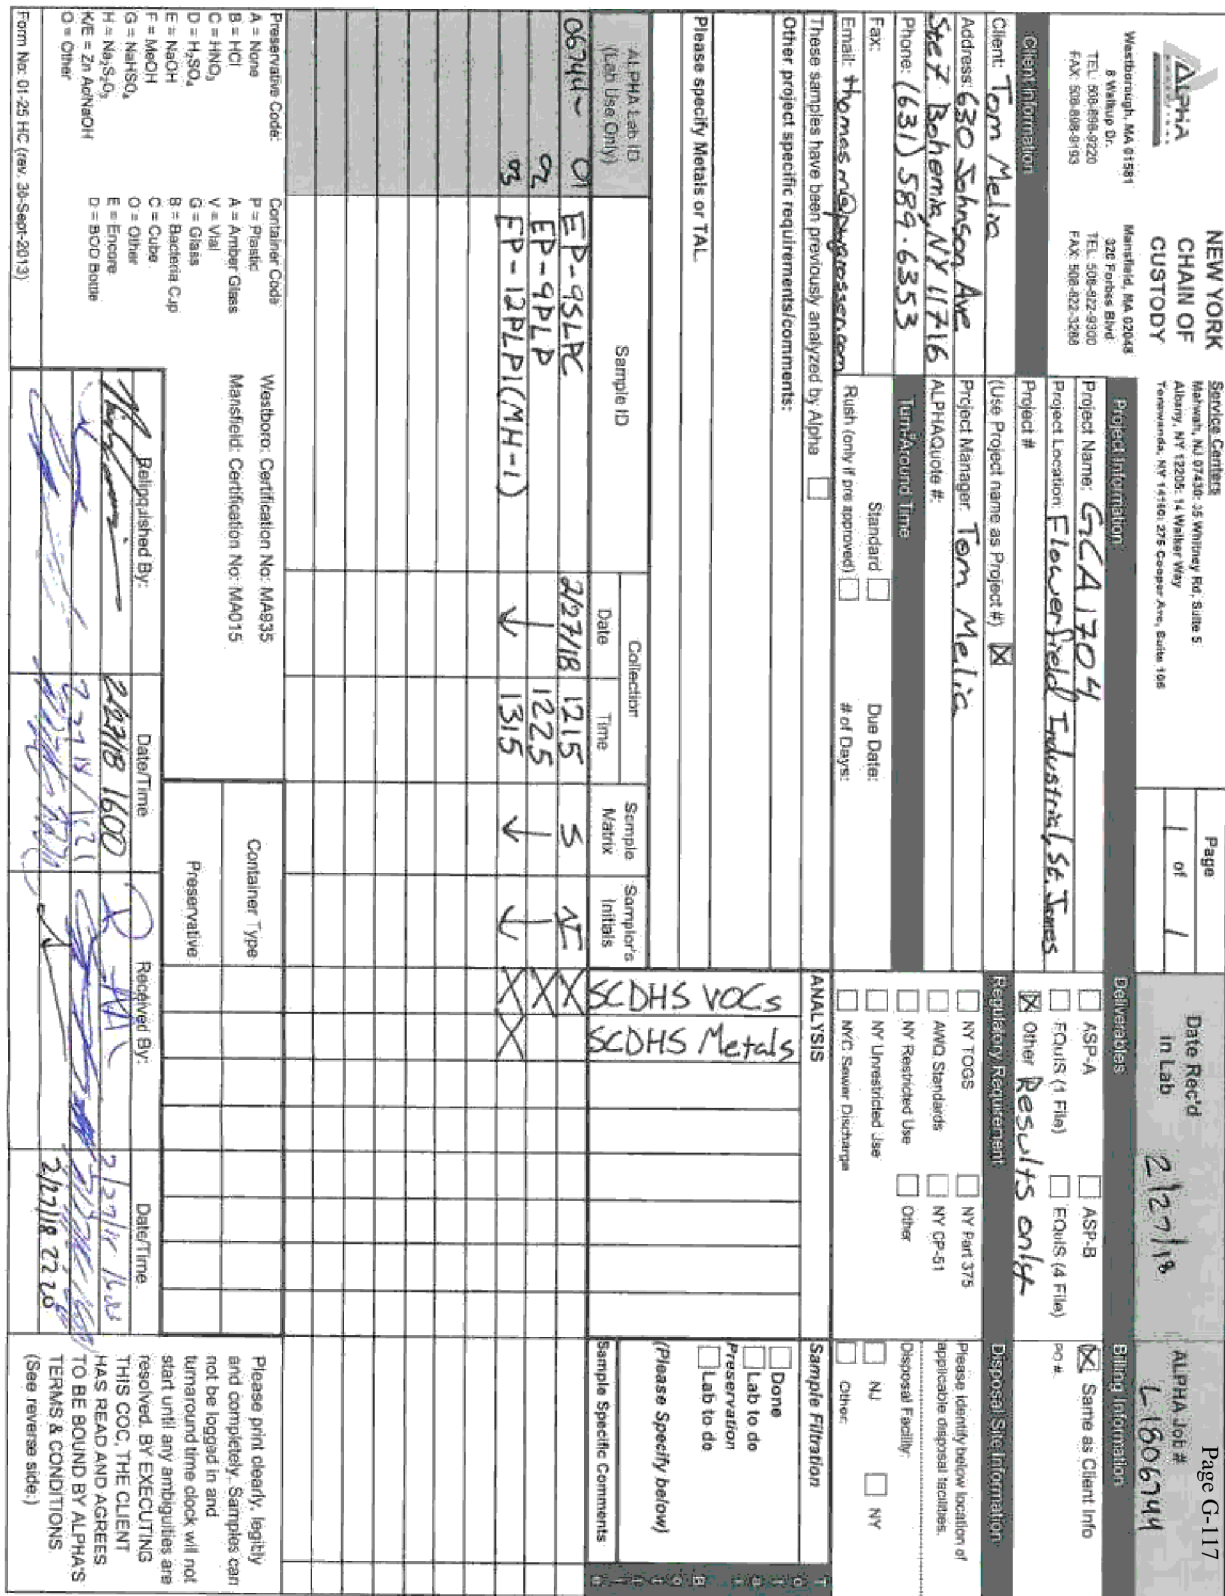 Page G-117
NEW YORK
CHAIN OF
CUSTODY
ALPHA
Westborough, MA 01581
8 Walkup Dr.
TEL: 508-898-9220
FAX: 508-898-9193
Mansfield, MA 02048
320 Forbes Blvd
TEL: 508-822-9300
FAX: 508-822-3288
Service Centers
Mahwah, NJ 07430: 35 Whitney Rd, Suite 5
Albany, NY 12205: 14 Walker Way
Tonawanda, NY 14150: 275 Cooper Ave, Suite 105
Page
1 of 1
Date Rec'd
in Lab
2/27/18
ALPHA Job #
L1806744
Client Information
Client: Tom Melia
Address: 630 Johnson Ave
Ste 7 Bohemia, NY 11716
Phone: (631) 589-6353
Fax:
Email: thomasm@pwgrosser.com
Project Information
Project Name: GCA1704
Project Location: Flowerfield Industrial, St. James
Project #
(Use Project name as Project #) X
Project Manager: Tom Melia
ALPHAQuote #:
Turn-Around Time
Standard
Due Date:
Rush (only if pre approved)
# of Days:
Deliverables
ASP-A
ASP-B
EQuIS (1 File)
EQuIS (4 File)
X Other Results only
Regulatory Requirement
NY TOGS
NY Part 375
AWQ Standards
NY CP-51
NY Restricted Use
Other
NY Unrestricted Use
NYC Sewer Discharge
Billing Information
X Same as Client Info
PO #
Disposal Site Information
Please identify below location of
applicable disposal facilities.
Disposal Facility:
NJ
NY
Other:
These samples have been previously analyzed by Alpha
Other project specific requirements/comments:
Please specify Metals or TAL.
ANALYSIS
SCDHS VOCs
SCDHS Metals
Sample Filtration
Done
Lab to do
Preservation
Lab to do
(Please Specify below)
Sample Specific Comments
ALPHA Lab ID
(Lab Use Only)
Sample ID
Collection
Date
Time
Sample
Matrix
Sampler's
Initials
06744-01 EP-9SLPC 2/27/18 1215 S X
02 EP-9PLP 1225 X
03 EP-12PLP1(MH-1) 1315 X X
Preservative Code:
A = None
B = HCl
C = HNO₃
D = H₂SO₄
E = NaOH
F = MeOH
G = NaHSO₄
H = Na₂S₂O₃
K/E = Zn Ac/NaOH
O = Other
Container Code
P = Plastic
A = Amber Glass
V = Vial
G = Glass
B = Bacteria Cup
C = Cube
O = Other
E = Encore
D = BOD Bottle
Westboro: Certification No: MA935
Mansfield: Certification No: MA015
Container Type
Preservative
Relinquished By:
Date/Time
Received By:
Date/Time
2/27/18 1600
2/27/18 2220
Please print clearly, legibly
and completely. Samples can
not be logged in and
turnaround time clock will not
start until any ambiguities are
resolved. BY EXECUTING
THIS COC, THE CLIENT
HAS READ AND AGREES
TO BE BOUND BY ALPHA'S
TERMS & CONDITIONS.
(See reverse side.)
Form No: 01-25 HC (rev. 30-Sept-2013)